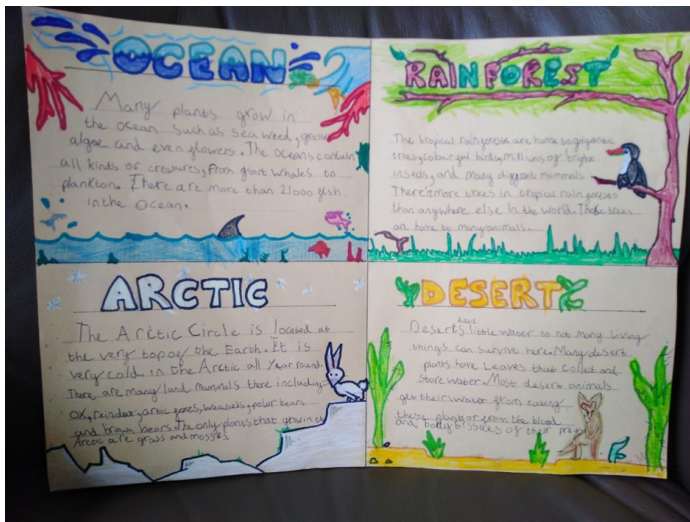 OCEAN
Many plants grow in
the ocean such as sea weed, grasses
algae and even flowers. The oceans contain
all kinds of creatures, from giant whales to
plankton. There are more than 21000 fish
in the ocean.
RAINFOREST
The tropical rainforests are home to gigantic
trees, colourful birds, millions of bright
insects, and many different mammals
There more trees in tropical rain forests
than anywhere else in the world. These trees
are home to many animals.
ARCTIC
The Arctic Circle is located at
the very top of the Earth. It is
very cold in the Arctic all year round.
There are many land mammals there including
ox, reindeer, arctic foxes, weasels, polar bears
and brown bears. The only plants that grow in
Arctic are grass and mosses
DESERT
have
Deserts little water so not many living
things can survive here. Many desert
plants have leaves that collect and
store water. Most desert animals
get their water from eating
these plants or from the blood
and body tissues of their prey